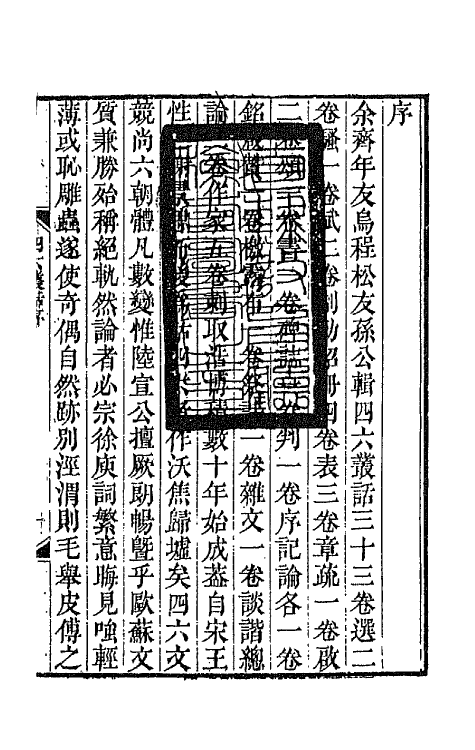 序
余齊年友烏程松友孫公輯四六叢話三十三卷選二
卷騷一卷賦二卷制勅詔冊四卷表三卷章疏一卷啟
二卷頌一卷書一卷碑誌一卷判一卷序記論各一卷
銘箴贊一卷檄露布一卷祭誄一卷雜文一卷談諧總
論一卷作家五卷剌取浩博積數十年始成蓋自宋王
性之 作沃焦歸墟矣四六文
競尚六朝體凡數變惟陸宣公擅厥朗暢曁乎歐蘇文
質兼勝始稱絕軌然論者必宗徐庾詞繁意晦見嗤輕
薄或恥雕蟲遂使奇偶自然跡別涇渭則毛舉皮傅之